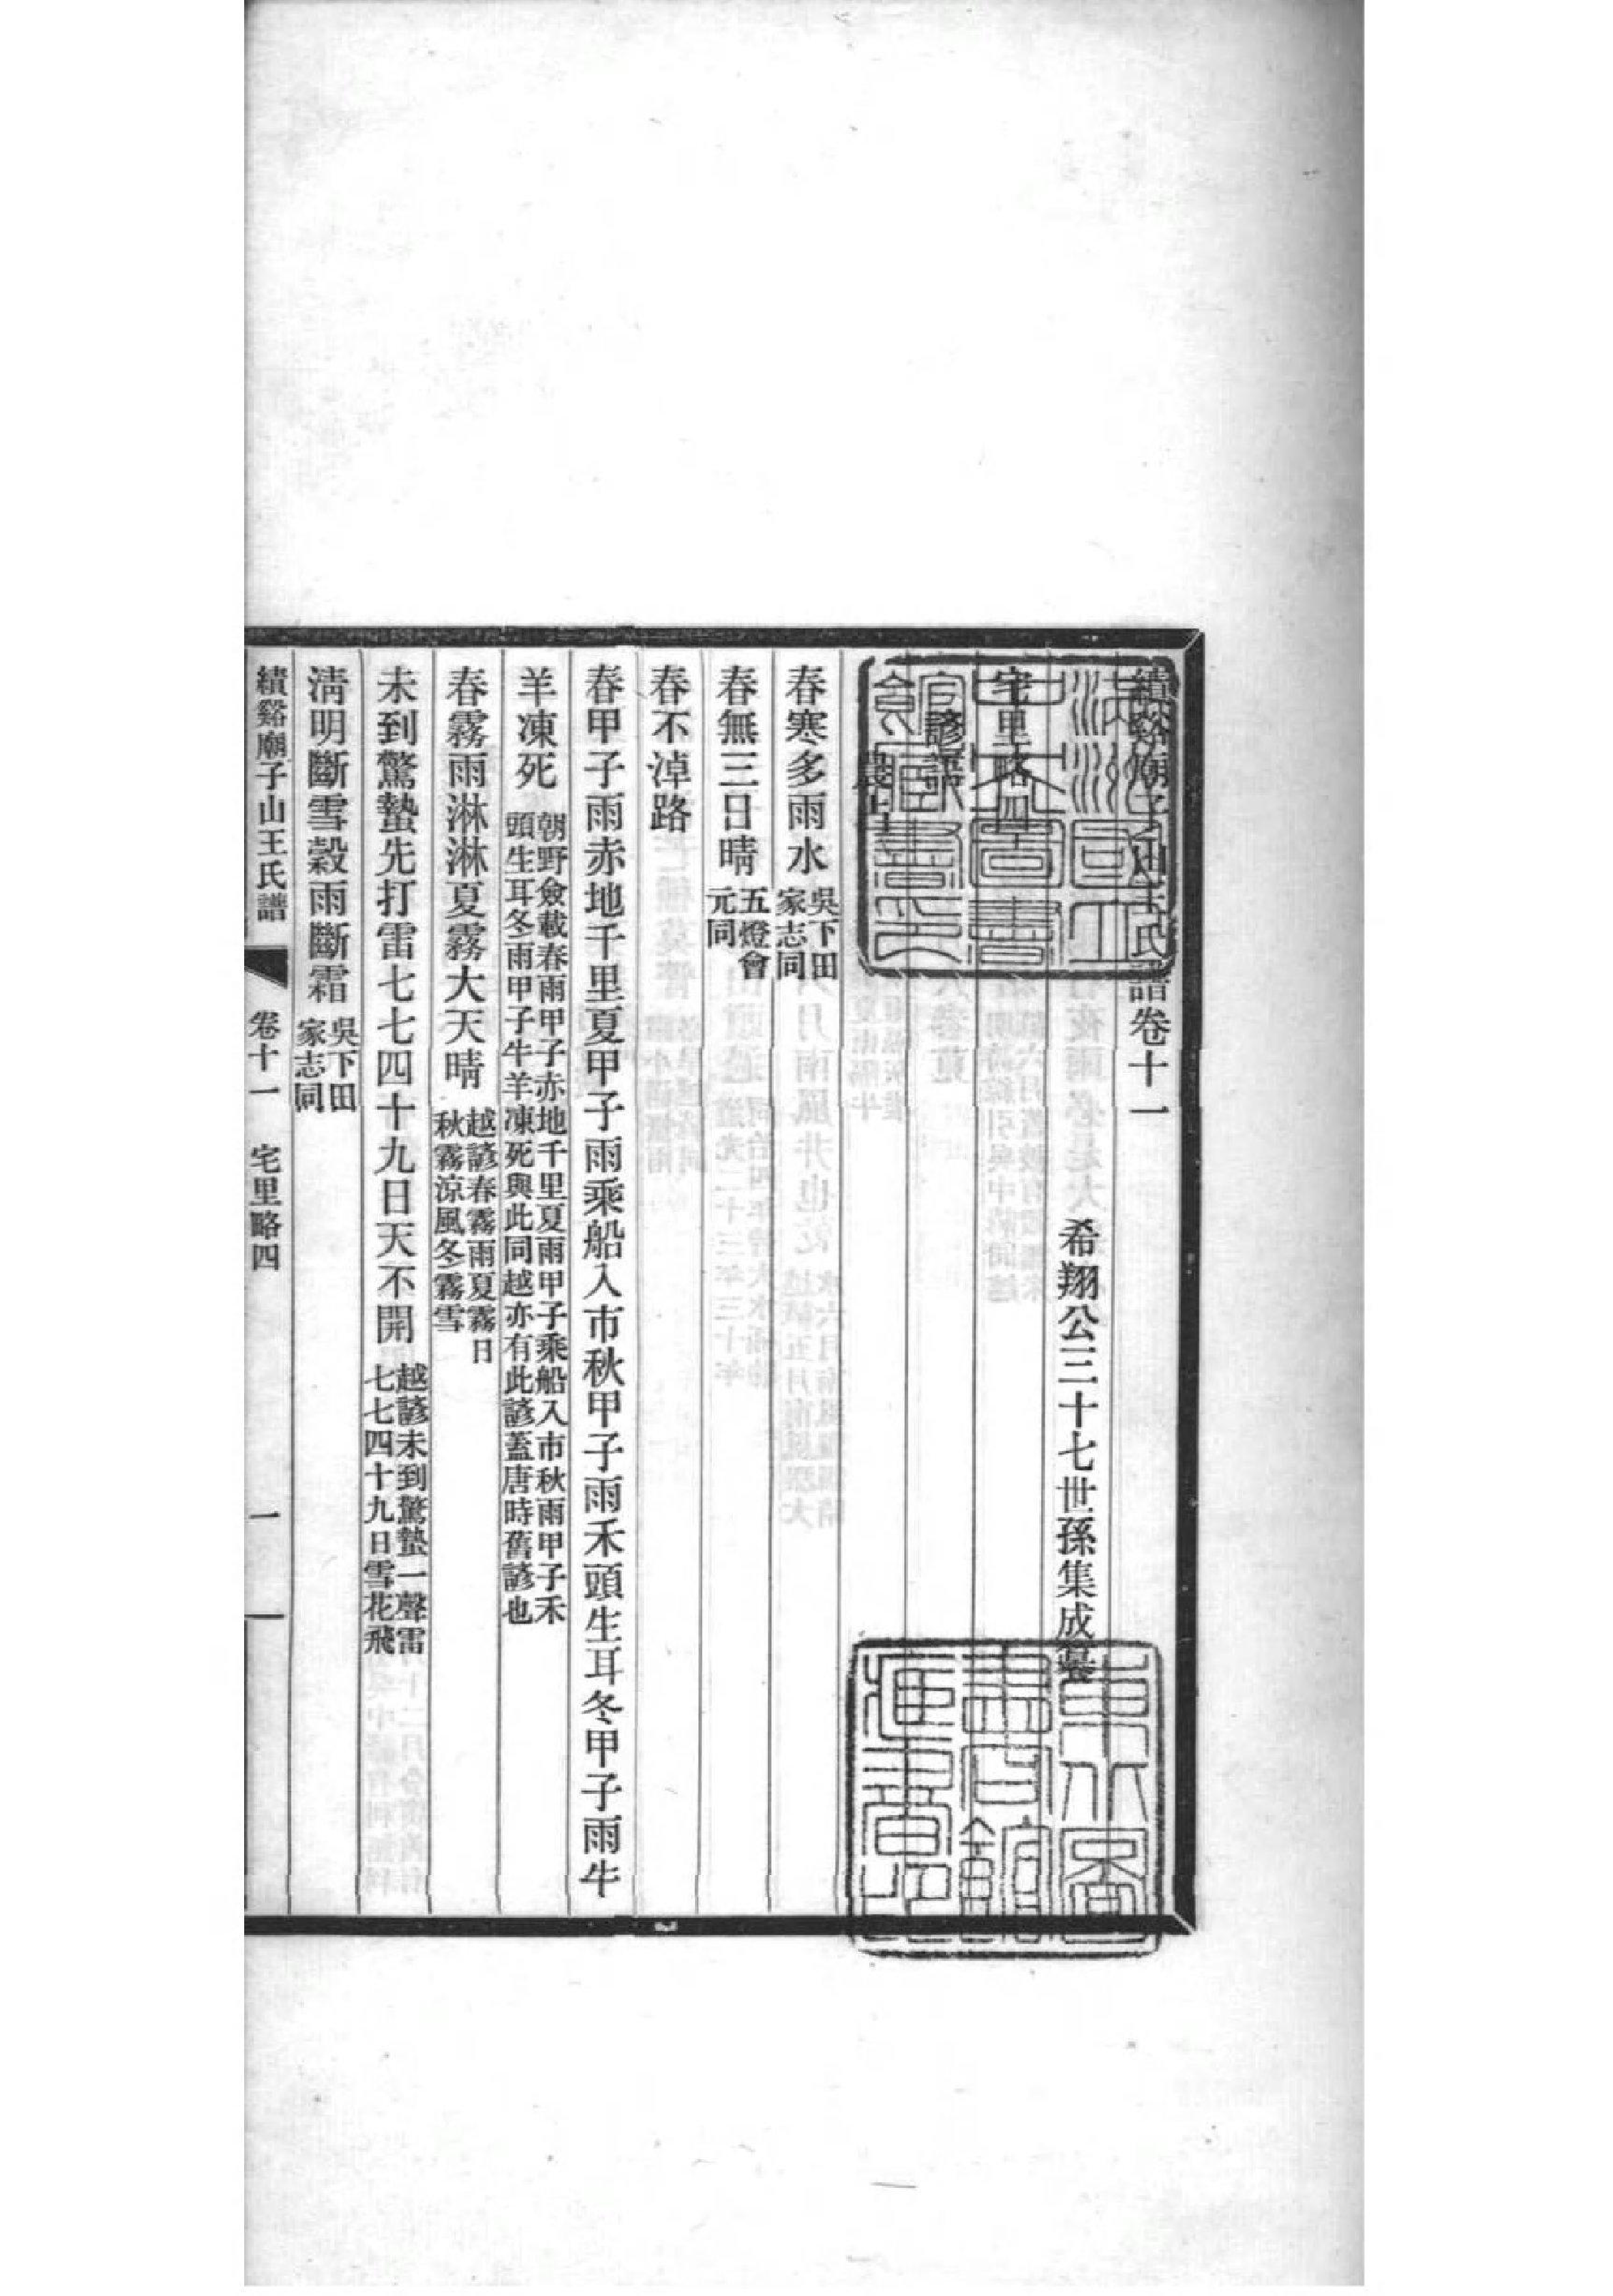 績谿廟子山王氏譜卷十一
希翔公三十七世孫集成纂
宅里略四
諺語
農占
春寒多雨水 吳下田家志同
春無三日晴 五燈會元同
春不淖路
春甲子雨赤地千里夏甲子雨乘船入市秋甲子雨禾頭生耳冬甲子雨牛
羊凍死 朝野僉載春雨甲子赤地千里夏雨甲子乘船入市秋雨甲子禾頭生耳冬雨甲子牛羊凍死與此同越亦有此諺蓋唐時舊諺也
春霧雨淋淋夏霧大天晴 越諺春霧雨夏霧日秋霧涼風冬霧雪
未到驚蟄先打雷七七四十九日天不開 越諺未到驚蟄一聲雷七七四十九日雪花飛
淸明斷雪穀雨斷霜 吳下田家志同
績谿廟子山王氏譜 卷十一 宅里略四 一